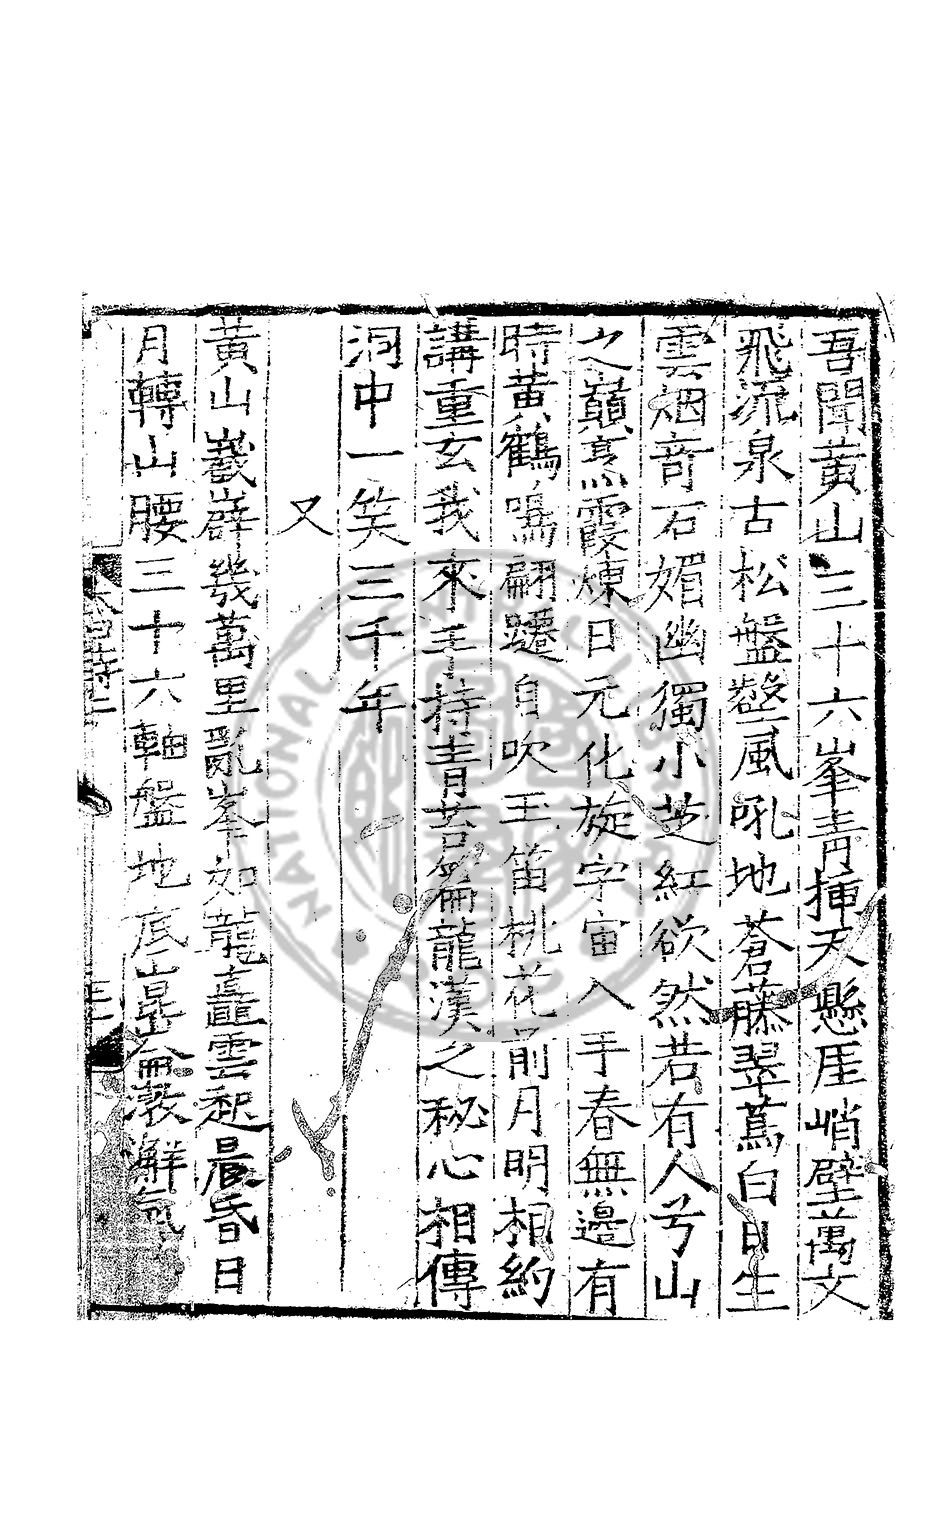 吾聞黄山三十六峯青揷天懸厓峭壁萬丈
飛流泉古松盤壑風吼地蒼藤翠蔦白日生
雲烟竒石媚幽獨小芝紅欲然若有人兮山
之巔烹霞煉日元化旋宇宙入手春無邊有
時黄鶴鳴翩躚自吹玉笛桃花前月明相約
講重玄我來手持青萏龍漢之秘心相傳
洞中一笑三千年
又
黄山巖嶭幾萬里亂峯如龍矗雲起晨昏日
月轉山腰三十六軸盤地底崑崙澥氣
NATIONAL CENTRAL LIBRARY